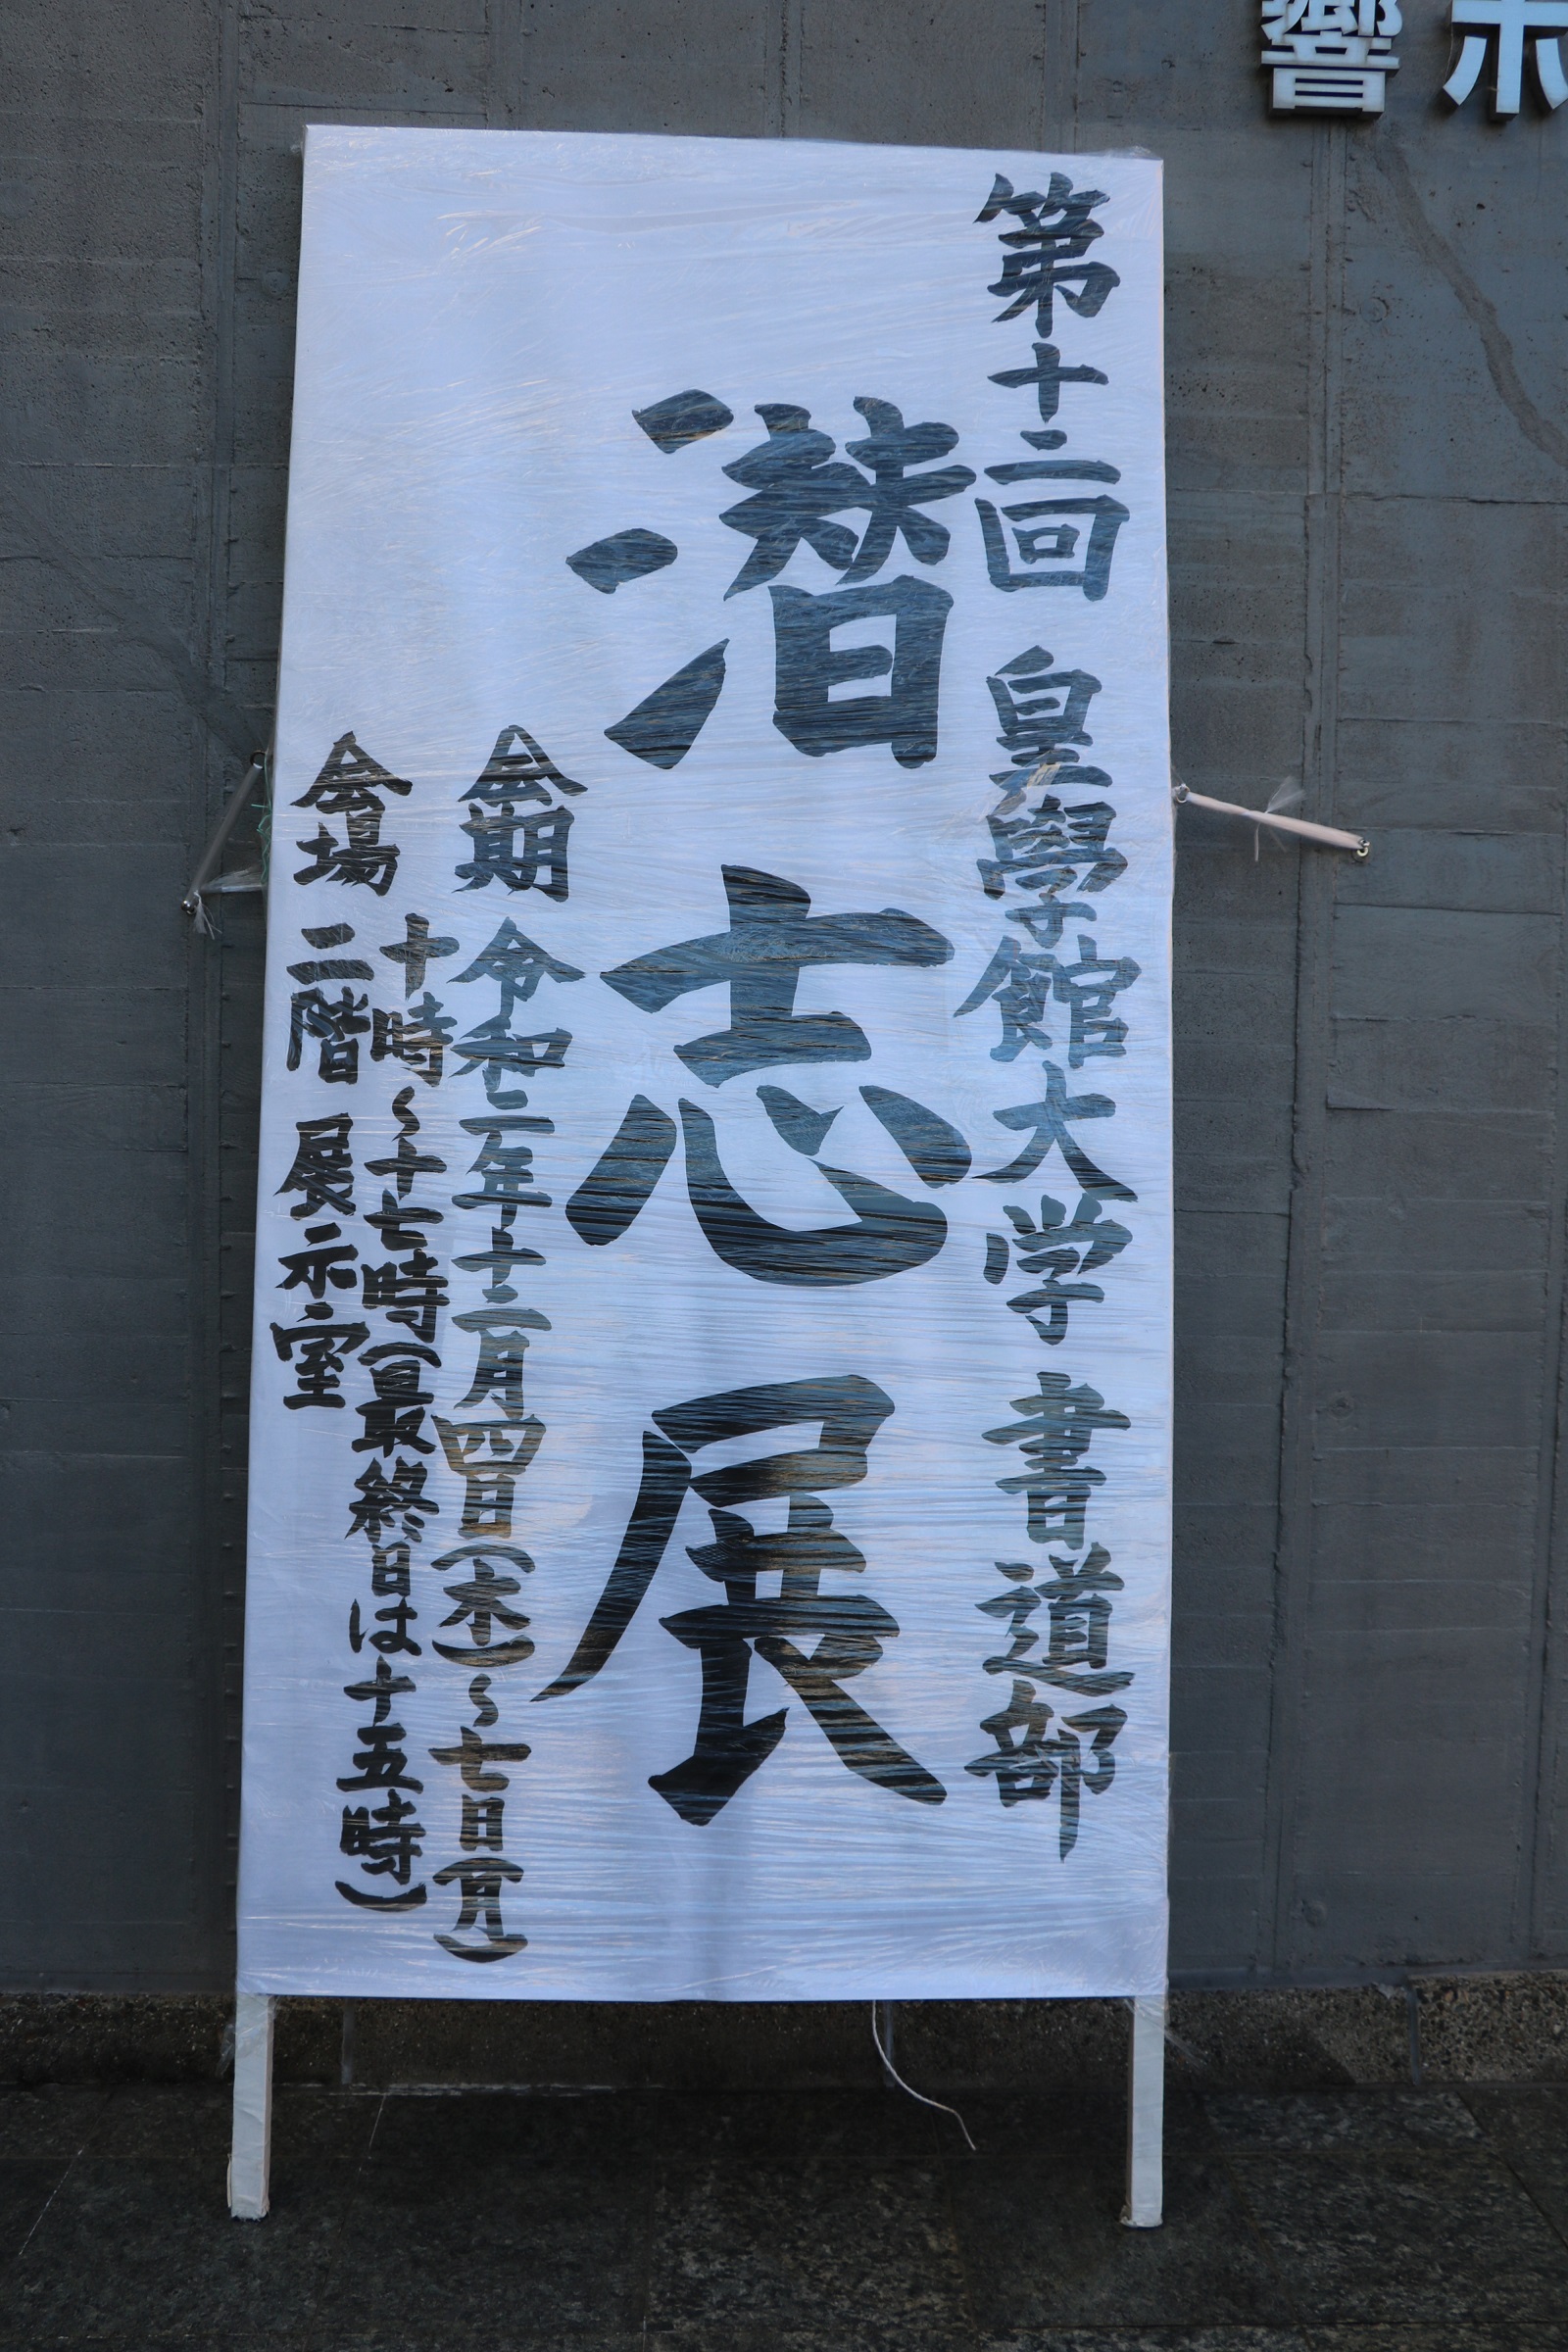 響ホ
第十二回 皇學館大学 書道部
潜志展
会期 令和二年十二月四日(金)～七日(月)
十時～十七時(最終日は十五時)
会場 二階 展示室